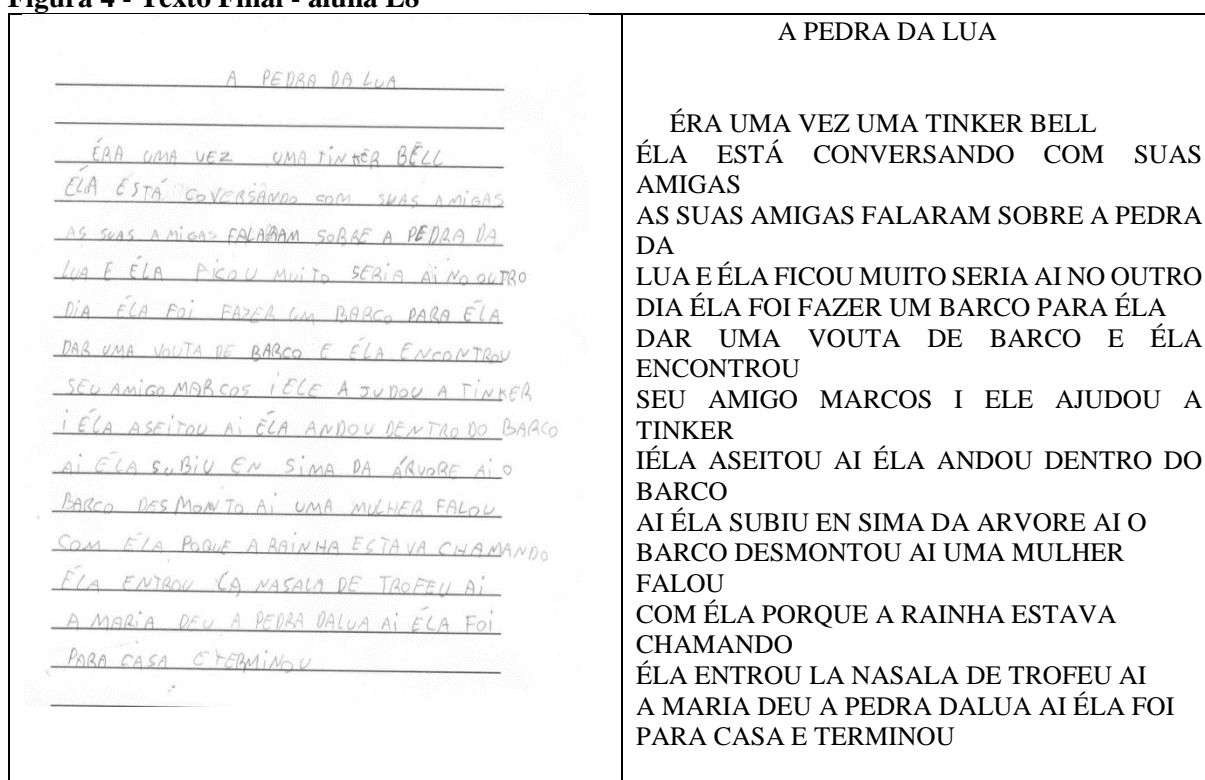 Figura 4 - Texto Final - aluna L8
A PEDRA DA LUA
ÉRA UMA VEZ UMA TINKER BÉLL
ÉLA ÉSTÁ COVERSANDO COM SUAS AMIGAS
AS SUAS AMIGAS FALARAM SOBRE A PEDRA DA
LUA E ÉLA FICOU MUITO SERIA AI NO OUTRO
DIA ÉLA FOI FAZER UM BARCO PARA ÉLA
DAR UMA VOUTA DE BARCO E ÉLA ENCONTROU
SEU AMIGO MARCOS I ELE A JUDOU A TINKER
I ÉLA ASEITOU AI ÉLA ANDOU DENTRO DO BARCO
AI ÉLA SUBIU EN SIMA DA ÁRVORE AI O
BARCO DESMONTO AI UMA MULHER FALOU
COM ÉLA POQUE A RAINHA ESTAVA CHAMANDO
ÉLA ENTROU LA NASALA DE TROFEU AI
A MARIA DEU A PEDRA DALUA AI ÉLA FOI
PARA CASA E TERMINOU
A PEDRA DA LUA
ÉRA UMA VEZ UMA TINKER BELL
ÉLA ESTÁ CONVERSANDO COM SUAS
AMIGAS
AS SUAS AMIGAS FALARAM SOBRE A PEDRA
DA
LUA E ÉLA FICOU MUITO SERIA AI NO OUTRO
DIA ÉLA FOI FAZER UM BARCO PARA ÉLA
DAR UMA VOUTA DE BARCO E ÉLA
ENCONTROU
SEU AMIGO MARCOS I ELE AJUDOU A
TINKER
IÉLA ASEITOU AI ÉLA ANDOU DENTRO DO
BARCO
AI ÉLA SUBIU EN SIMA DA ARVORE AI O
BARCO DESMONTOU AI UMA MULHER
FALOU
COM ÉLA PORQUE A RAINHA ESTAVA
CHAMANDO
ÉLA ENTROU LA NASALA DE TROFEU AI
A MARIA DEU A PEDRA DALUA AI ÉLA FOI
PARA CASA E TERMINOU